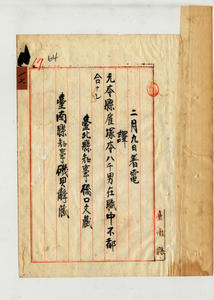 二月九日著電
譯
元本縣雇塚本八千男在職中不都
合ナシ
臺北縣知事橋口文藏
臺南縣知事磯貝靜藏
臺南縣
64